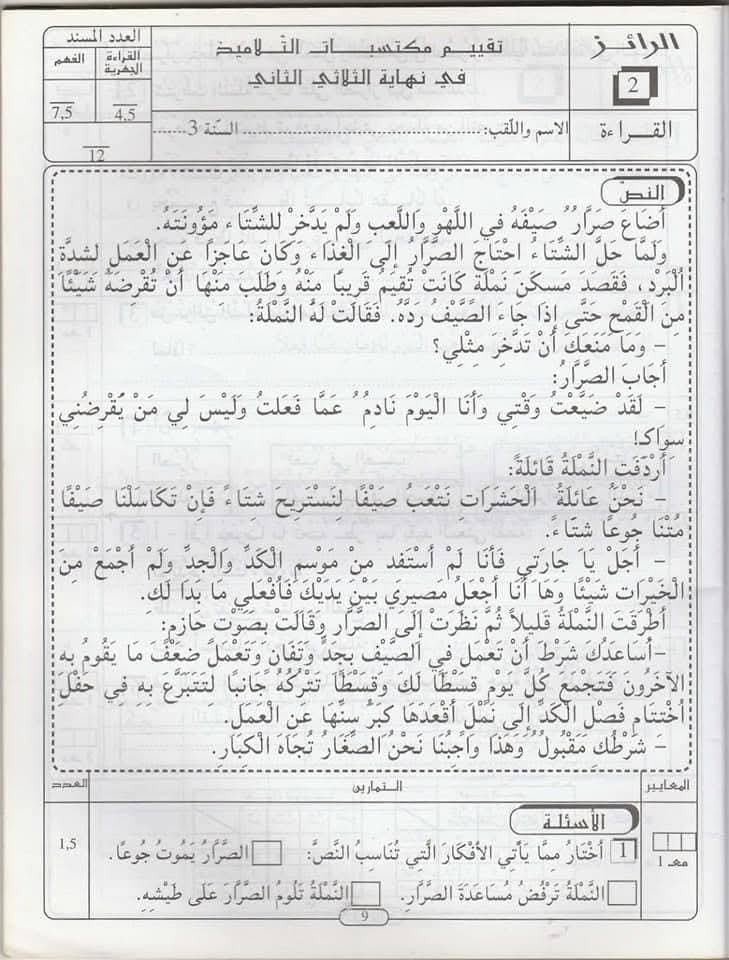 الرائز
2
القراءة
تقييم مكتسبات التلاميذ
في نهاية الثلاثي الثاني
الاسم واللقب:.............................السنة 3.....
العدد المسند
القراءة الجهرية
الفهم
4,5
7,5
12
النص
أَضَاعَ صَرَّارٌ صَيْفَهُ فِي اللَّهْوِ وَاللَّعِبِ وَلَمْ يَدَّخِرْ لِلشِّتَاءِ مَؤُونَتَهُ.
وَلَمَّا حَلَّ الشِّتَاءُ احْتَاجَ الصَّرَّارُ إِلَى الْغِذَاءِ وَكَانَ عَاجِزًا عَنِ الْعَمَلِ لِشِدَّةِ
الْبَرْدِ، فَقَصَدَ مَسْكَنَ نَمْلَةٍ كَانَتْ تُقِيمُ قَرِيبًا مِنْهُ وَطَلَبَ مِنْهَا أَنْ تُقْرِضَهُ شَيْئًا
مِنَ الْقَمْحِ حَتَّى إِذَا جَاءَ الصَّيْفُ رَدَّهُ. فَقَالَتْ لَهُ النَّمْلَةُ:
– وَمَا مَنَعَكَ أَنْ تَدَّخِرَ مِثْلِي؟
أَجَابَ الصَّرَّارُ:
– لَقَدْ ضَيَّعْتُ وَقْتِي وَأَنَا الْيَوْمَ نَادِمٌ عَمَّا فَعَلْتُ وَلَيْسَ لِي مَنْ يُقْرِضُنِي
سِوَاكِ!
أَرْدَفَتِ النَّمْلَةُ قَائِلَةً:
– نَحْنُ عَائِلَةَ الْحَشَرَاتِ نَتْعَبُ صَيْفًا لِنَسْتَرِيحَ شِتَاءً فَإِنْ تَكَاسَلْنَا صَيْفًا
مُتْنَا جُوعًا شِتَاءً.
– أَجَلْ يَا جَارَتِي فَأَنَا لَمْ أَسْتَفِدْ مِنْ مَوْسِمِ الْكَدِّ وَالْجِدِّ وَلَمْ أَجْمَعْ مِنَ
الْخَيْرَاتِ شَيْئًا وَهَا أَنَا أَجْعَلُ مَصِيرِي بَيْنَ يَدَيْكِ فَافْعَلِي مَا بَدَا لَكِ.
أَطْرَقَتِ النَّمْلَةُ قَلِيلاً ثُمَّ نَظَرَتْ إِلَى الصَّرَّارِ وَقَالَتْ بِصَوْتٍ حَازِمٍ:
–أُسَاعِدُكَ شَرْطَ أَنْ تَعْمَلَ فِي الصَّيْفِ بِجِدٍّ وَتَفَانٍ وَتَعْمَلَ ضِعْفَ مَا يَقُومُ بِهِ
الآخَرُونَ فَتَجْمَعَ كُلَّ يَوْمٍ قِسْطًا لَكَ وَقِسْطًا تَتْرُكُهُ جَانِبًا لِتَتَبَرَّعَ بِهِ فِي حَفْلِ
اخْتِتَامِ فَصْلِ الْكَدِّ إِلَى نَمْلٍ أَقْعَدَهَا كِبَرُ سِنِّهَا عَنِ الْعَمَلِ.
– شَرْطُكِ مَقْبُولٌ وَهَذَا وَاجِبُنَا نَحْنُ الصِّغَارُ تُجَاهَ الْكِبَارِ.
المعايير
التمارين
العدد
الأسئلة
معـ 1
1 أَخْتَارُ مِمَّا يَأْتِي الأَفْكَارَ الَّتِي تُنَاسِبُ النَّصَّ: الصَّرَّارُ يَمُوتُ جُوعًا.
1,5
النَّمْلَةُ تَرْفُضُ مُسَاعَدَةَ الصَّرَّارِ. النَّمْلَةُ تَلُومُ الصَّرَّارَ عَلَى طَيْشِهِ.
9